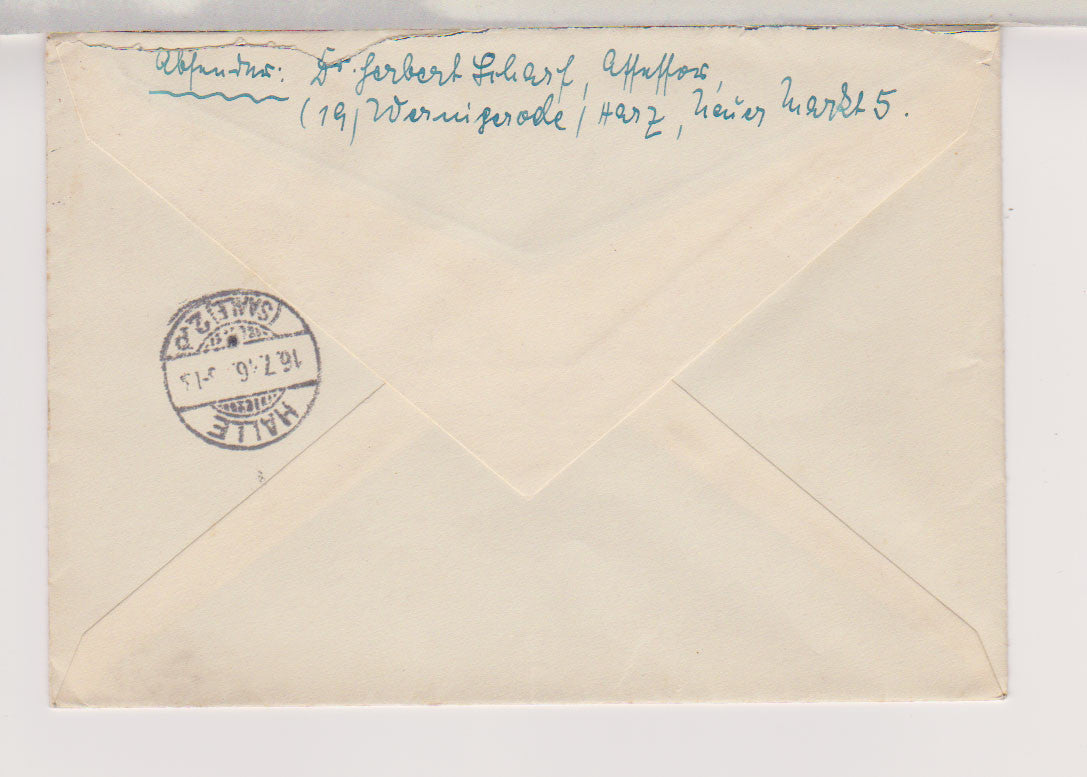 Absender: Dr. Herbert Scharf, Assessor,
(19) Wernigerode / Harz, Neuer Markt 5.
(SAALE) 2 P
16.7.46.
HALLE